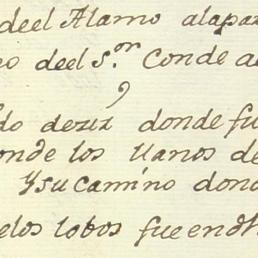 deel Alamo alapaz
eo deel s.or Conde de
do dezir donde fu
onde los llanos de
Ysu camino dond
elos lobos fue en dh